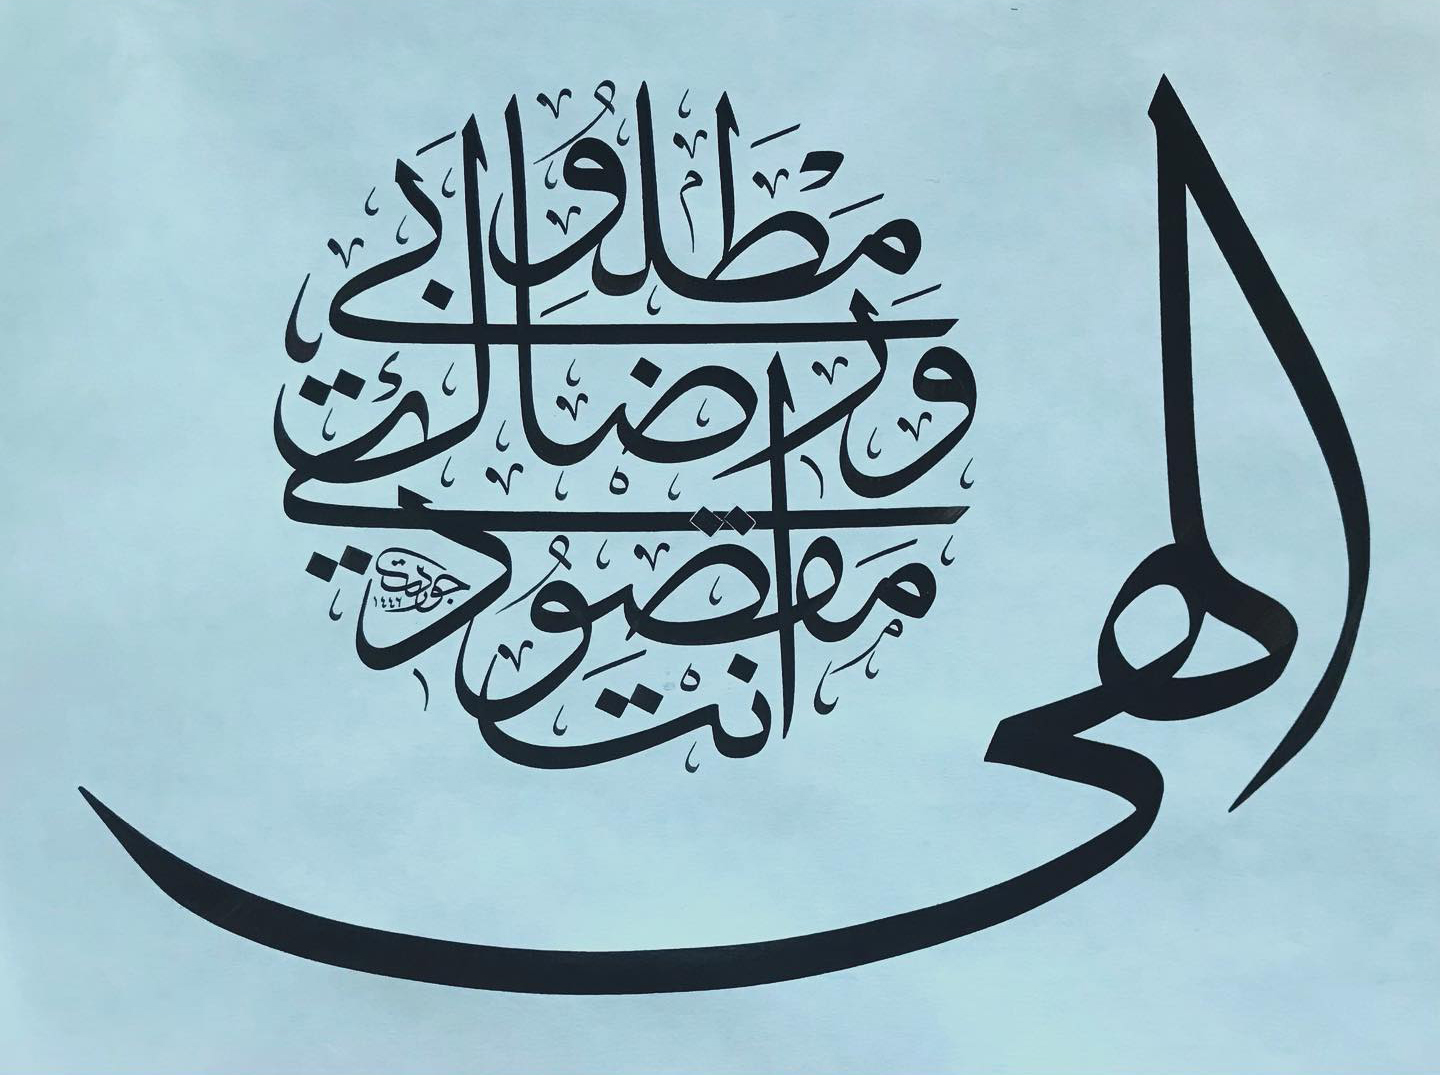 الهي
انت مقصودي
ورضاك مطلوبي
جودت
١٤٤٦